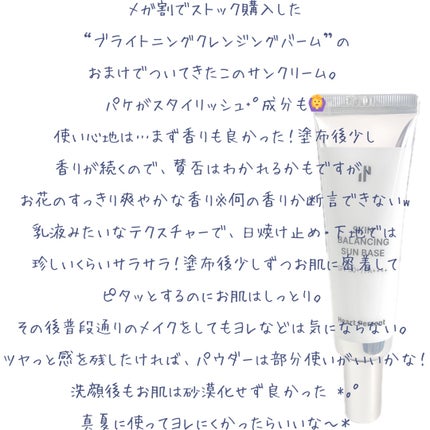 メガ割でストック購入した
“ブライトニングクレンジングバーム”の
おまけでついてきたこのサンクリーム。
パケがスタイリッシュ･ﾟ成分も🙆‍♀️
使い心地は…まず香りも良かった！塗布後少し
香りが続くので、賛否はわかれるかもですが、
お花のすっきり爽やかな香り※何の香りか断言できないw
乳液みたいなテクスチャーで、日焼け止め･下地では
珍しいくらいサラサラ！塗布後少しずつお肌に密着して
ピタッとするのにお肌はしっとり。
その後普段通りのメイクをしてもヨレなどは気にならない。
ツヤっと感を残したければ、パウダーは部分使いがいいかな！
洗顔後もお肌は砂漠化せず良かった *｡ﾟ
真夏に使ってヨレにくかったらいいな〜*
SKIN
BALANCING
SUN BASE
Heart Percent